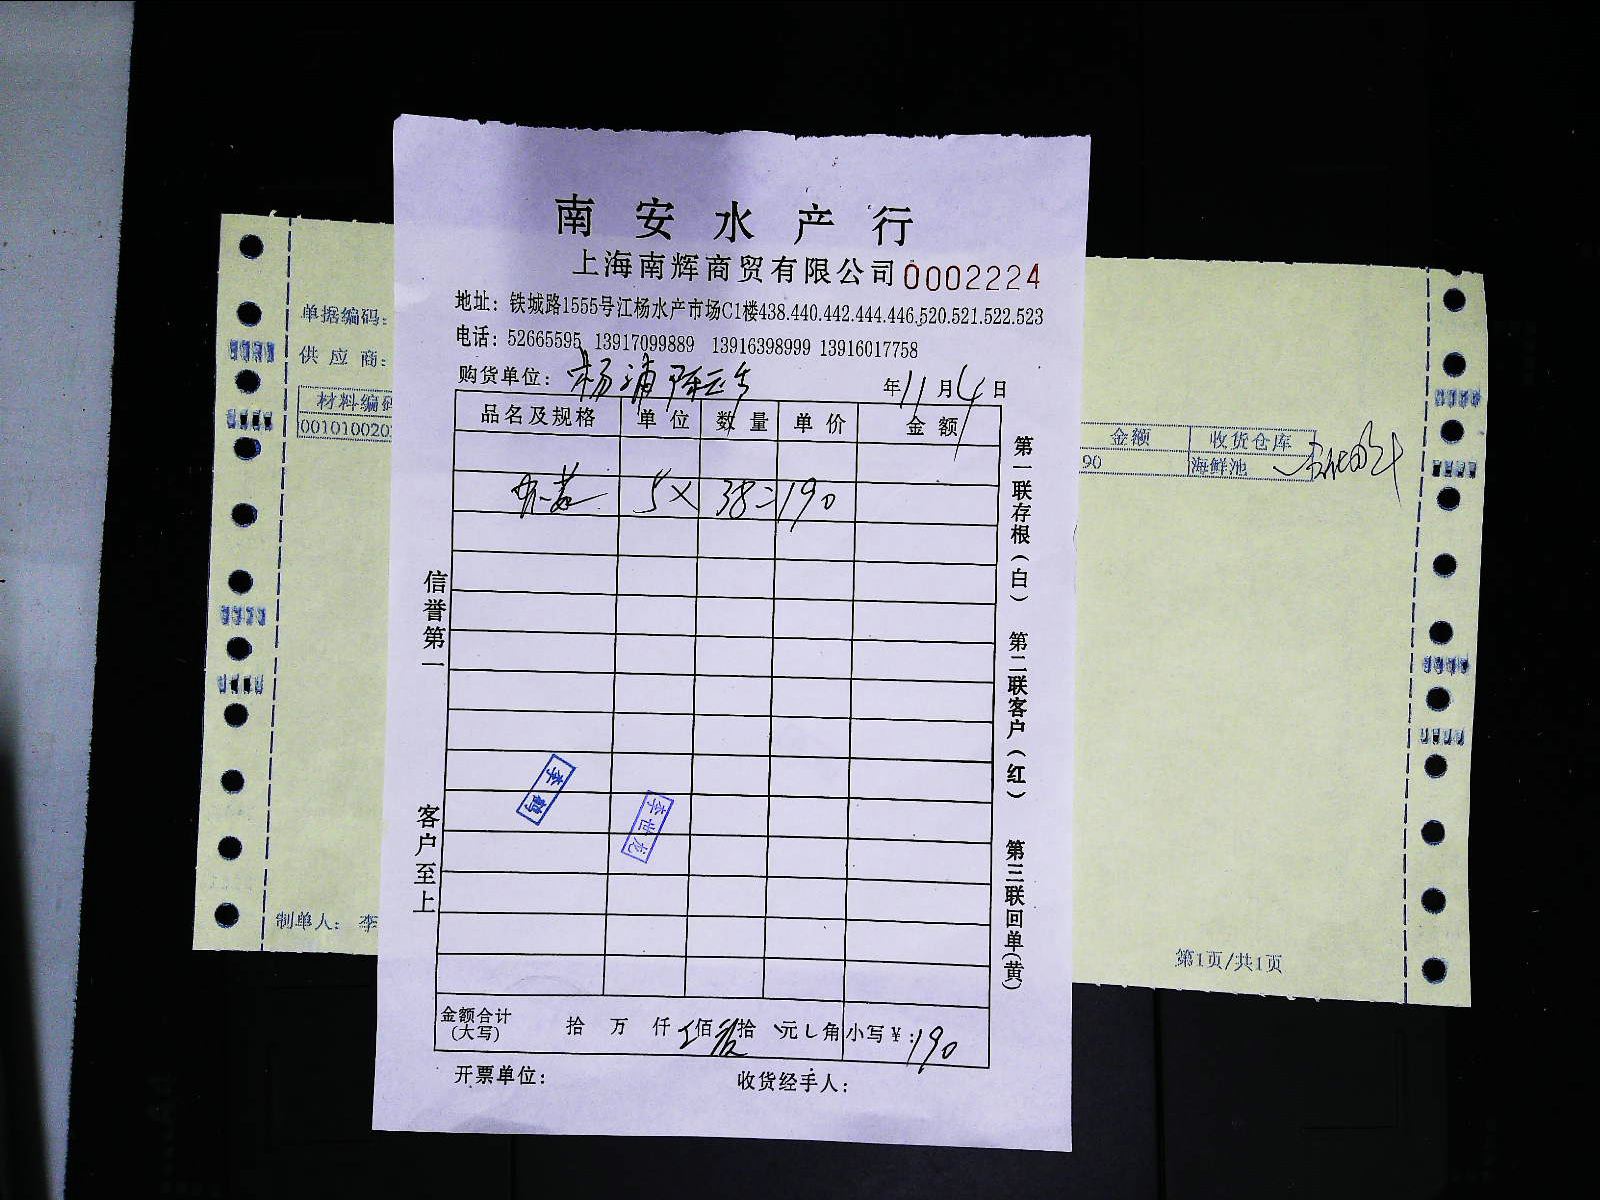 南安水产行
上海南辉商贸有限公司 0002224
地址：铁城路1555号江杨水产市场C1楼438.440.442.444.446.520.521.522.523
电话：52665595 13917099889 13916398999 13916017758
购货单位：杨浦 年11月4日
品名及规格 单位 数量 单价 金额
5× 38=190
信誉第一
客户至上
第一联存根(白)
第二联客户(红)
第三联回单(黄)
李鹤
李世龙
金额合计(大写) 拾 万 仟 佰 拾 元 角 小写¥：190
开票单位： 收货经手人：
单据编码：
供应商：
材料编码
001010020
金额 收货仓库
90 海鲜池
制单人：李
第1页/共1页